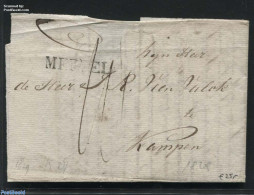 MEPPEL
Mijn Heer
de Heer J. R. Van Valck
te
Kampen
1828